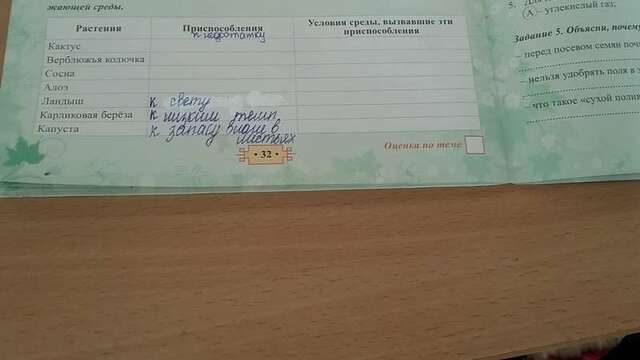 жающей среды.
Растения Приспособления Условия среды, вызвавшие эти приспособления
к недостатку
Кактус
Верблюжья колючка
Сосна
Алоэ
Ландыш к свету
Карликовая берёза к низким темп.
Капуста к запасу влаги в листьях
• 32 •
Оценка по теме
5.
А – углекислый газ;
Задание 5. Объясни, почему
– перед посевом семян поч
– нельзя удобрять поля в
– что такое «сухой полив